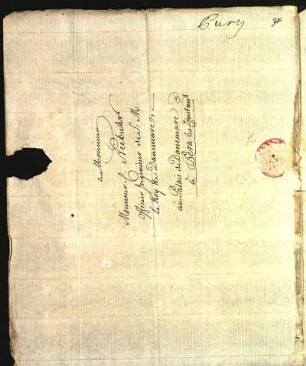 Pury
A Monsieur
Monsieur Niebuhr
Officier Ingenieur de S. M.
Le Roy de Dannemarc &.
au Palais de Dannemarc
à Pera les Constant.